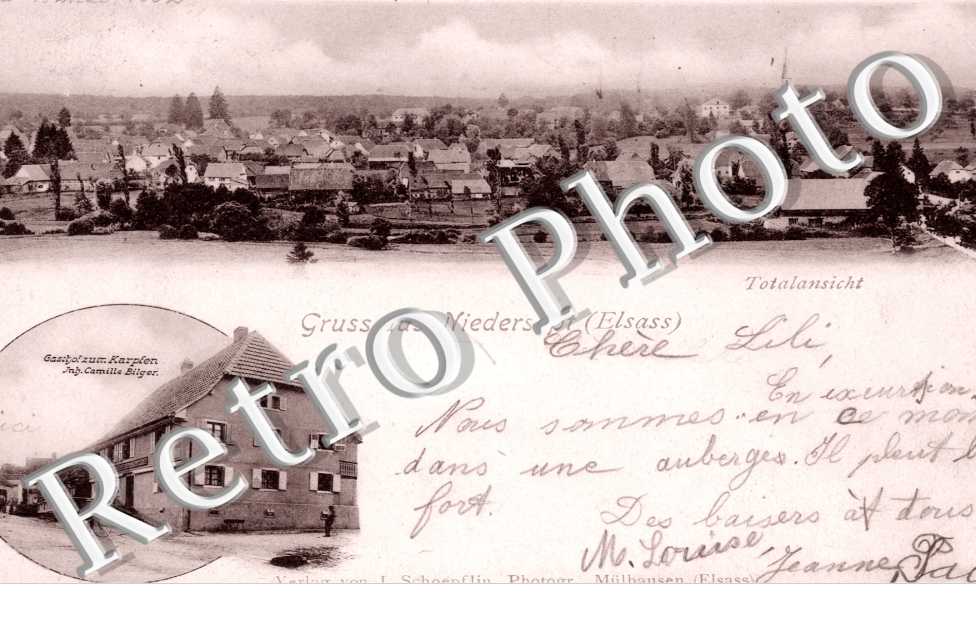 Totalansicht
Gruss aus Niedersept (Elsass)
Gasthof zum Karpfen
Inh. Camille Bilger.
Chère Lili,
En excursion
Nous sommes en ce mom
dans une auberges. Il pleut
fort.
Des baisers à tous
M. Louise, Jeanne,
Verlag von J. Schoepflin, Photogr. Mülhausen (Elsass)
Retro Photo